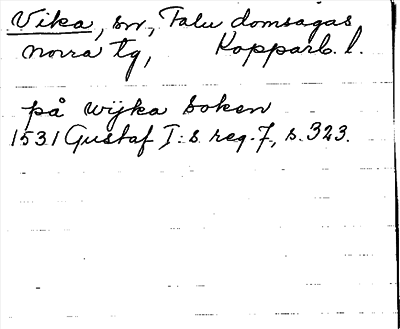 Vika, sn, Falu domsagas
norra tg, Kopparb. l.
på wijka soken
1531 Gustaf I:s reg. 7, s. 323.